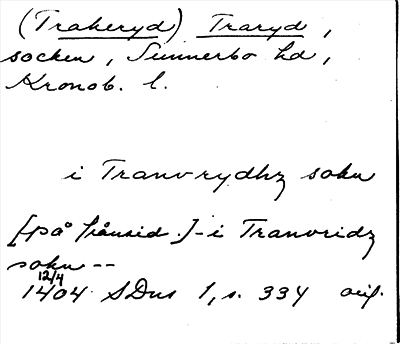 (Trakeryd) Traryd,
socken, Sunnerbo hd,
Kronob. l.
i Tranvrydhz sokn
[på frånsid.]-i Tranvridz
sokn --
12/4
1404 SDns 1, s. 334 orig.